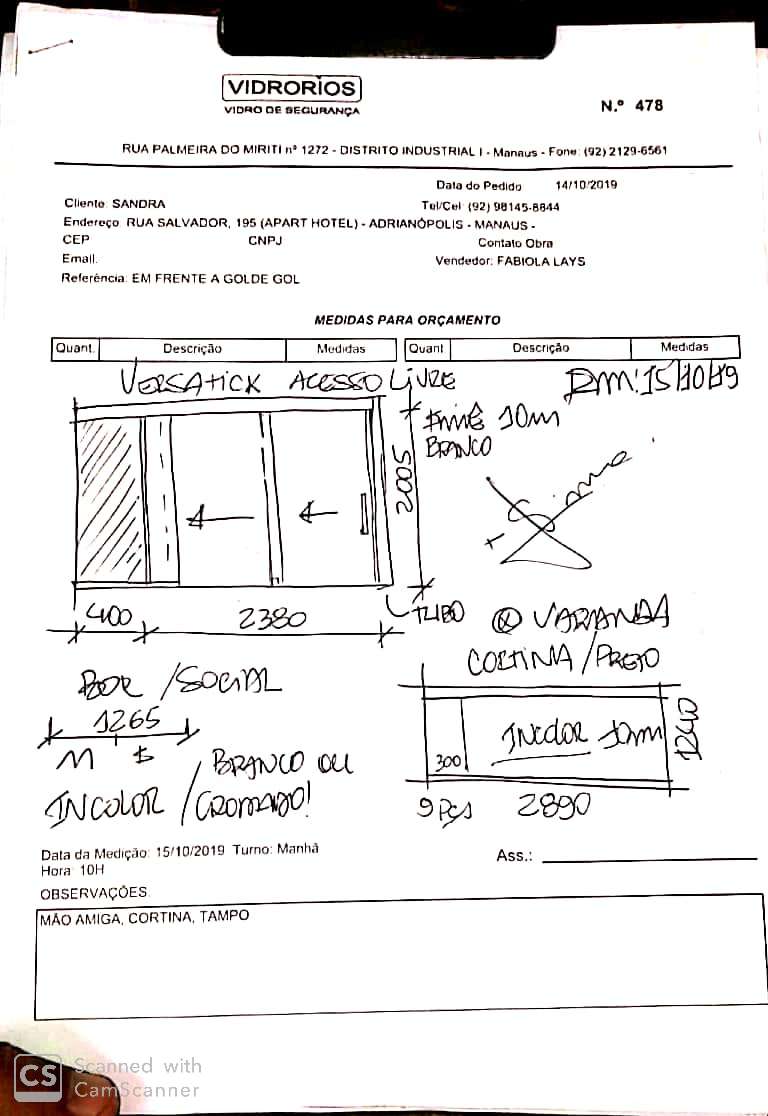 VIDRORIOS
VIDRO DE SEGURANÇA
N.º 478
RUA PALMEIRA DO MIRITI nº 1272 - DISTRITO INDUSTRIAL I - Manaus - Fone: (92) 2129-6561
Data do Pedido 14/10/2019
Cliente: SANDRA Tel/Cel: (92) 98145-8844
Endereço: RUA SALVADOR, 195 (APART HOTEL) - ADRIANÓPOLIS - MANAUS -
CEP CNPJ Contato Obra
Email: Vendedor: FABIOLA LAYS
Referência: EM FRENTE A GOLDE GOL
MEDIDAS PARA ORÇAMENTO
Quant. Descrição Medidas Quant Descrição Medidas
VERSATICK ACESSO LIVRE
15/10/19
10m
BRANCO
2005
400 2380 TUBO
VARANDA
CORTINA / PRETO
BOX / SOCIAL
1265
M
BRANCO OU
INCOLOR / CROMADO!
INCOLOR 10m
300
1240
9 Pçs 2890
Data da Medição: 15/10/2019 Turno: Manhã
Hora: 10H
Ass.:
OBSERVAÇÕES
MÃO AMIGA, CORTINA, TAMPO
CS Scanned with
CamScanner